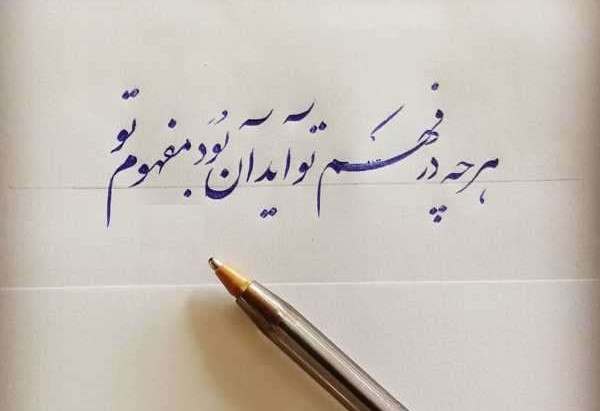 هرچه در فهم تو آید آن بُوَد مفهوم تو